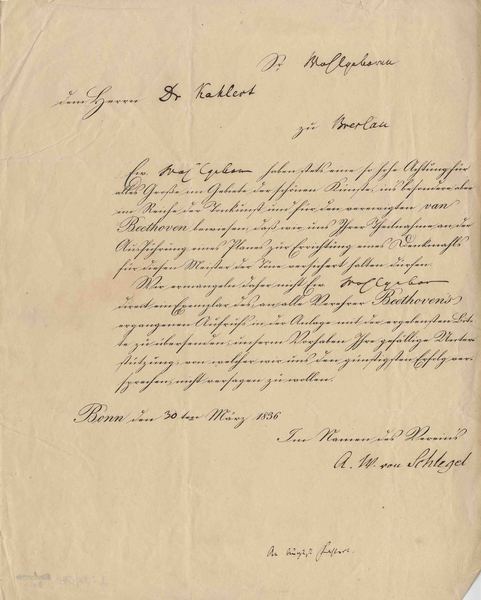 Sr Wohlgeboren
dem Herrn Dr Kahlert
zu Breslau
Ew. Wohlgeboren haben stets eine so hohe Achtung für
alles Große im Gebiete der schönen Künste, insbesondere aber
im Reiche der Tonkunst und für den verewigten van
Beethoven bewiesen, daß wir uns Ihrer Theilnahme an der
Ausführung eines Planes zur Errichtung eines Denkmahls
für diesen Meister der Töne versichert halten dürfen.
Wir ermangeln daher nicht Ew Wohlgeboren
ein Exemplar des an alle Verehrer Beethovens
ergangenen Aufrufs in der Anlage mit der ergebensten Bit-
te zu übersenden, unserm Vorhaben Ihre gefällige Unter-
stützung, von welcher wir uns den günstigsten Erfolg ver-
sprechen, nicht versagen zu wollen.
Bonn den 30ten März 1836
Im Namen des Vereins
A. W. von Schlegel
An August